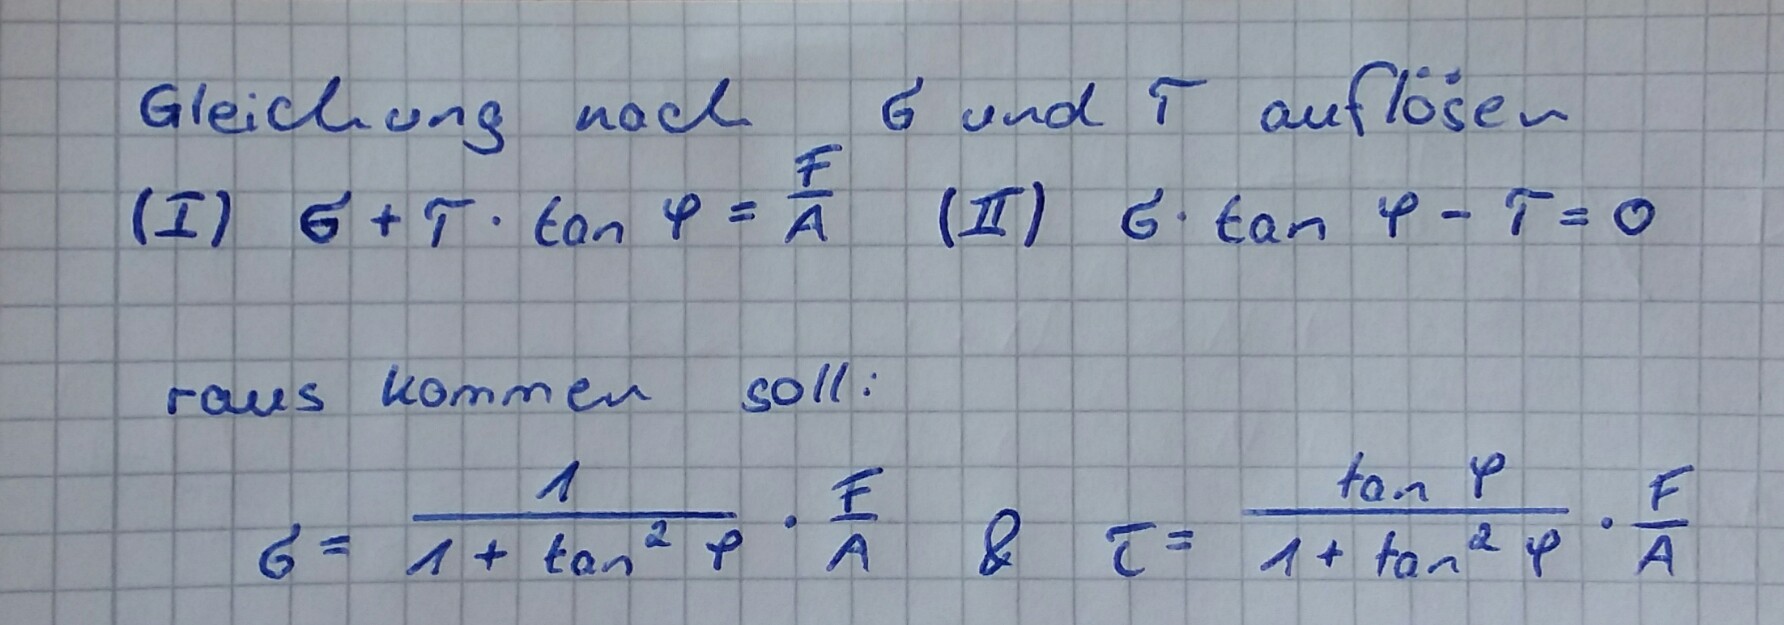 Gleichung nach σ und τ auflösen
(I) σ + τ · tan φ = F/A (II) σ · tan φ - τ = 0
raus kommen soll:
σ = 1/(1 + tan² φ) · F/A & τ = tan φ/(1 + tan² φ) · F/A